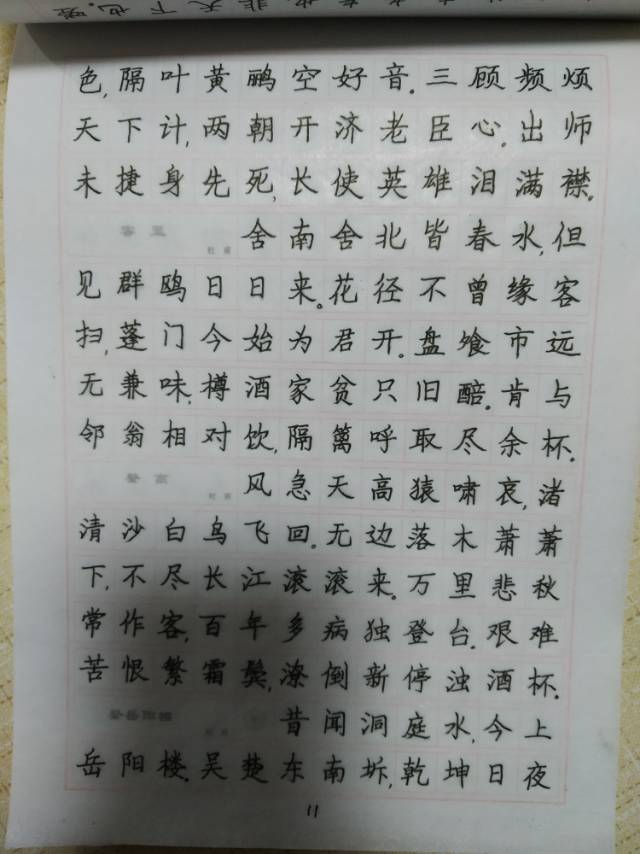 也.非天下也.嗟
色,隔叶黄鹂空好音.三顾频烦
天下计,两朝开济老臣心.出师
未捷身先死,长使英雄泪满襟.
客至 杜甫 舍南舍北皆春水,但
见群鸥日日来.花径不曾缘客
扫,蓬门今始为君开.盘飧市远
无兼味,樽酒家贫只旧醅.肯与
邻翁相对饮,隔篱呼取尽余杯.
登高 杜甫 风急天高猿啸哀,渚
清沙白鸟飞回.无边落木萧萧
下,不尽长江滚滚来.万里悲秋
常作客,百年多病独登台.艰难
苦恨繁霜鬓,潦倒新停浊酒杯.
登岳阳楼 昔闻洞庭水,今上
岳阳楼.吴楚东南坼,乾坤日夜
11